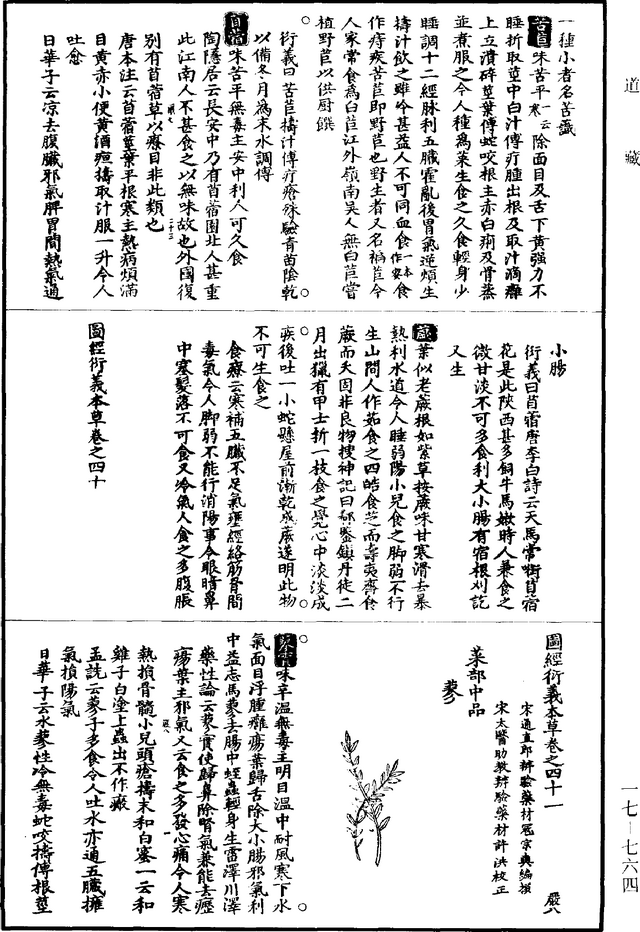 道藏
一種小者名苦蘵
苦苣味苦平一云寒除面目及舌下黄强力不
睡折取莖中白汁傅疔腫出根及取汁滴癰
上立潰碎莖葉傅蛇咬根主赤白痢及骨蒸
並煮服之今人種爲菜生食之久食輕身少
睡調十二經脉利五臟霍亂後胃氣逆煩生
擣汁飲之雖冷甚益人不可同血食一本作蜜食
作痔疾苦苣即野苣也野生者又名褊苣今
人家常食爲白苣江外嶺南吴人無白苣嘗
植野苣以供厨饌
衍義曰苦苣擣汁傅疔瘡殊驗青苗陰乾
以備冬月爲末水調傅
苜蓿味苦平無毒主安中利人可久食
陶隱居云長安中乃有苜蓿園北人甚重
此江南人不甚食之以無味故也外國復
别有苜蓿草以療目非此類也
唐本注云苜蓿莖葉平根寒主熱病煩滿
目黄赤小便黄酒疸擣取汁服一升令人
吐愈
日華子云凉去腹臟邪氣脾胃間熱氣通
小腸
衍義曰苜蓿唐李白詩云天馬常銜苜宿
花是此陝西甚多飼牛馬嫩時人兼食之
微甘淡不可多食利大小腸有宿根刈訖
又生
蕨葉似老蕨根如紫草按蕨味甘寒滑去暴
熱利水道令人睡弱陽小兒食之脚弱不行
生山間人作茹食之四皓食芝而壽夷齊食
蕨而夭固非良物搜神記曰郗鑒鎮丹徒二
月出獵有甲士折一枝食之覺心中淡淡成
疾後吐一小蛇懸屋前漸乾成蕨遂明此物
不可生食之
食療云寒補五臟不足氣壅經絡筋骨間
毒氣令人脚弱不能行消陽事令眼暗鼻
中塞髪落不可食又冷氣人食之多腹脹
圖經衍義本草卷之四十
圖經衍義本草卷之四十一
嚴八
宋通直郎辨驗藥材寇宗奭編撰
宋太醫助教辨驗藥材許洪校正
菜部中品
蓼
蓼實味辛温無毒主明目温中耐風寒下水
氣面目浮腫癰瘍葉歸舌除大小腸邪氣利
中益志馬蓼去腸中蛭蟲輕身生雷澤川澤
藥性論云蓼實使歸鼻除腎氣兼能去癧
瘍葉主邪氣又云食之多發心痛令人寒
熱損骨髓小兒頭瘡擣末和白蜜一云和
雞子白塗上蟲出不作瘢
孟詵云蓼子多食令人吐水亦通五臟擁
氣損陽氣
日華子云水蓼性冷無毒蛇咬擣傅根莖
一七—七六四